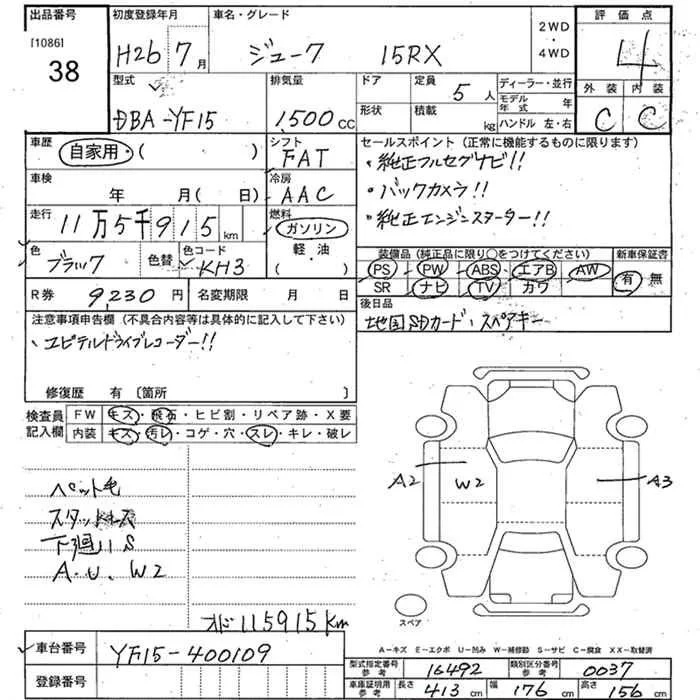 出品番号 初度登録年月 車名・グレード 2WD・4WD 評価点
[1086]
38 H26 7月 ジューク 15RX 4
型式 排気量 ドア 定員 5人 ディーラー・並行 外装 内装
DBA-YF15 1,500cc 形状 積載 kg モデル年式 年 C C
ハンドル 左・右
車歴 自家用・( ) シフト FAT セールスポイント (正常に機能するものに限ります)
・純正フルセグナビ!!
車検 年 月(日) 冷房 AAC ・バックカメラ!!
走行 11万5千915km 燃料 ガソリン 軽・油 ( ) ・純正エンジンスターター!!
色 ブラック 色替 色コード KH3 装備品 (純正品に限り○をつけてください) 新車保証書
PS PW ABS エアB AW 有 無
SR ナビ TV カワ
R券 9,230円 名変期限 月 日 後日品
地図SDカード・スペアキー
注意事項申告欄 (不具合内容等は具体的に記入して下さい)
・ユピテルドライブレコーダー!!
修復歴 有 〔箇所 〕
検査員記入欄 FW キズ・飛石・ヒビ割・リペア跡・X要
内装 キズ・汚レ・コゲ・穴・スレ・キレ・破レ
A2 W2 A3
ペット毛
下廻りS
A.U.W2
オド115915Km
スペア
A−キズ E−エクボ U−凹み W−補修跡 S−サビ C−腐食 XX−取替済
車台番号 YF15-400109
登録番号
型式指定番号 参考 16492 類別区分番号 参考 0037
車庫証明用 参考 長さ 413cm 幅 176cm 高さ 156cm